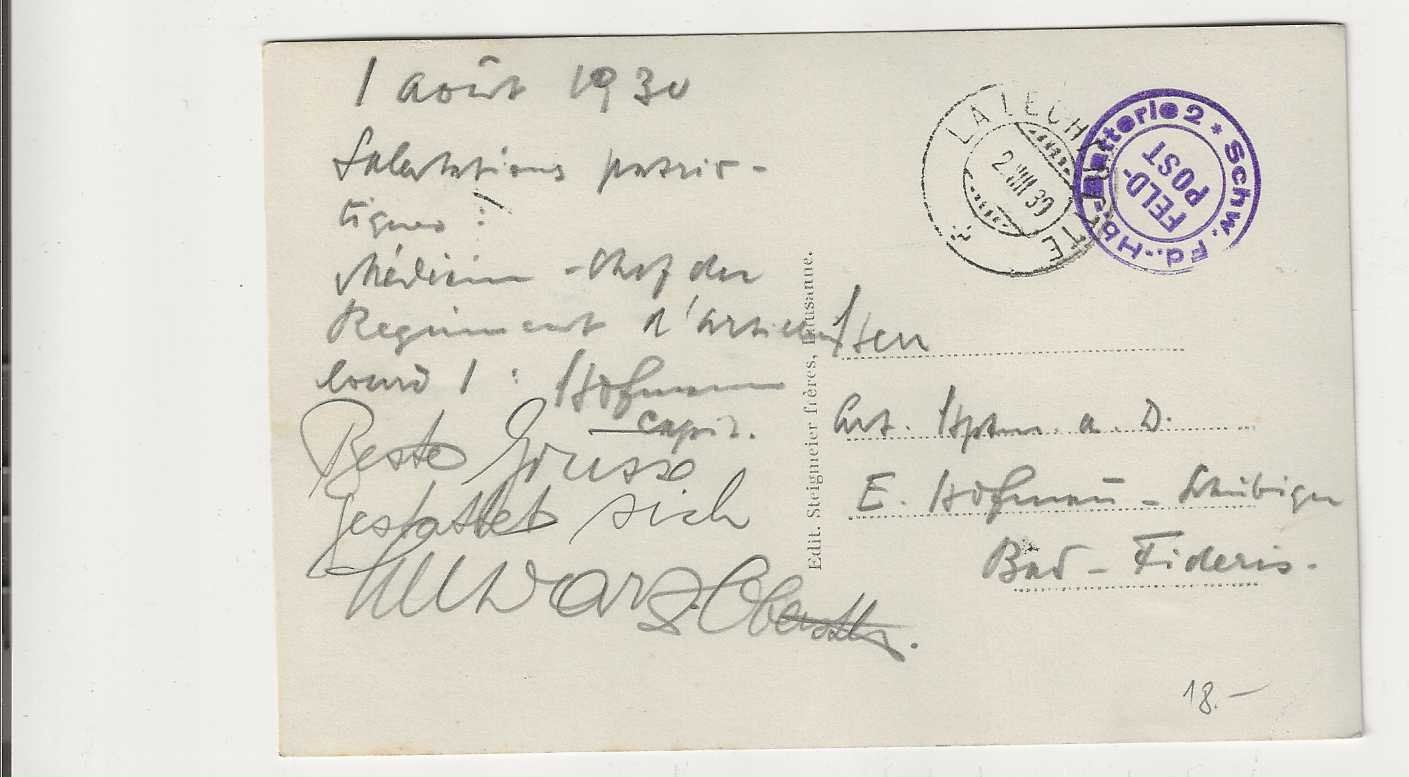 1 août 1930
Salutations patrio-
tiques :
Médicin-Chef du
Regiment d'artillerie
lourd 1 : Hofmann
capit.
Beste Grüsse
gestattet sich
Schwarz. Oberstlt.
Edit. Steigmeier frères, Lausanne.
LA LECHERETTE
2.VIII 30
Schw. Fd.-Hb.-Batterie 2 *
FELD-
POST
Herr
Art. Hptm. a. D.
E. Hofmann -
Bad - Fideris.
18.-